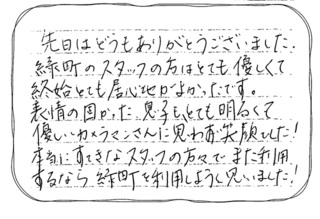 先日はどうもありがとうございました。
緑町のスタッフの方はとても優しくて
終始とても居心地がよかったです。
表情の固かった息子もとても明るくて
優しいカメラマンさんに思わず笑顔でした!
本当にすてきなスタッフの方々でまた利用
するなら緑町を利用しようと思いました!